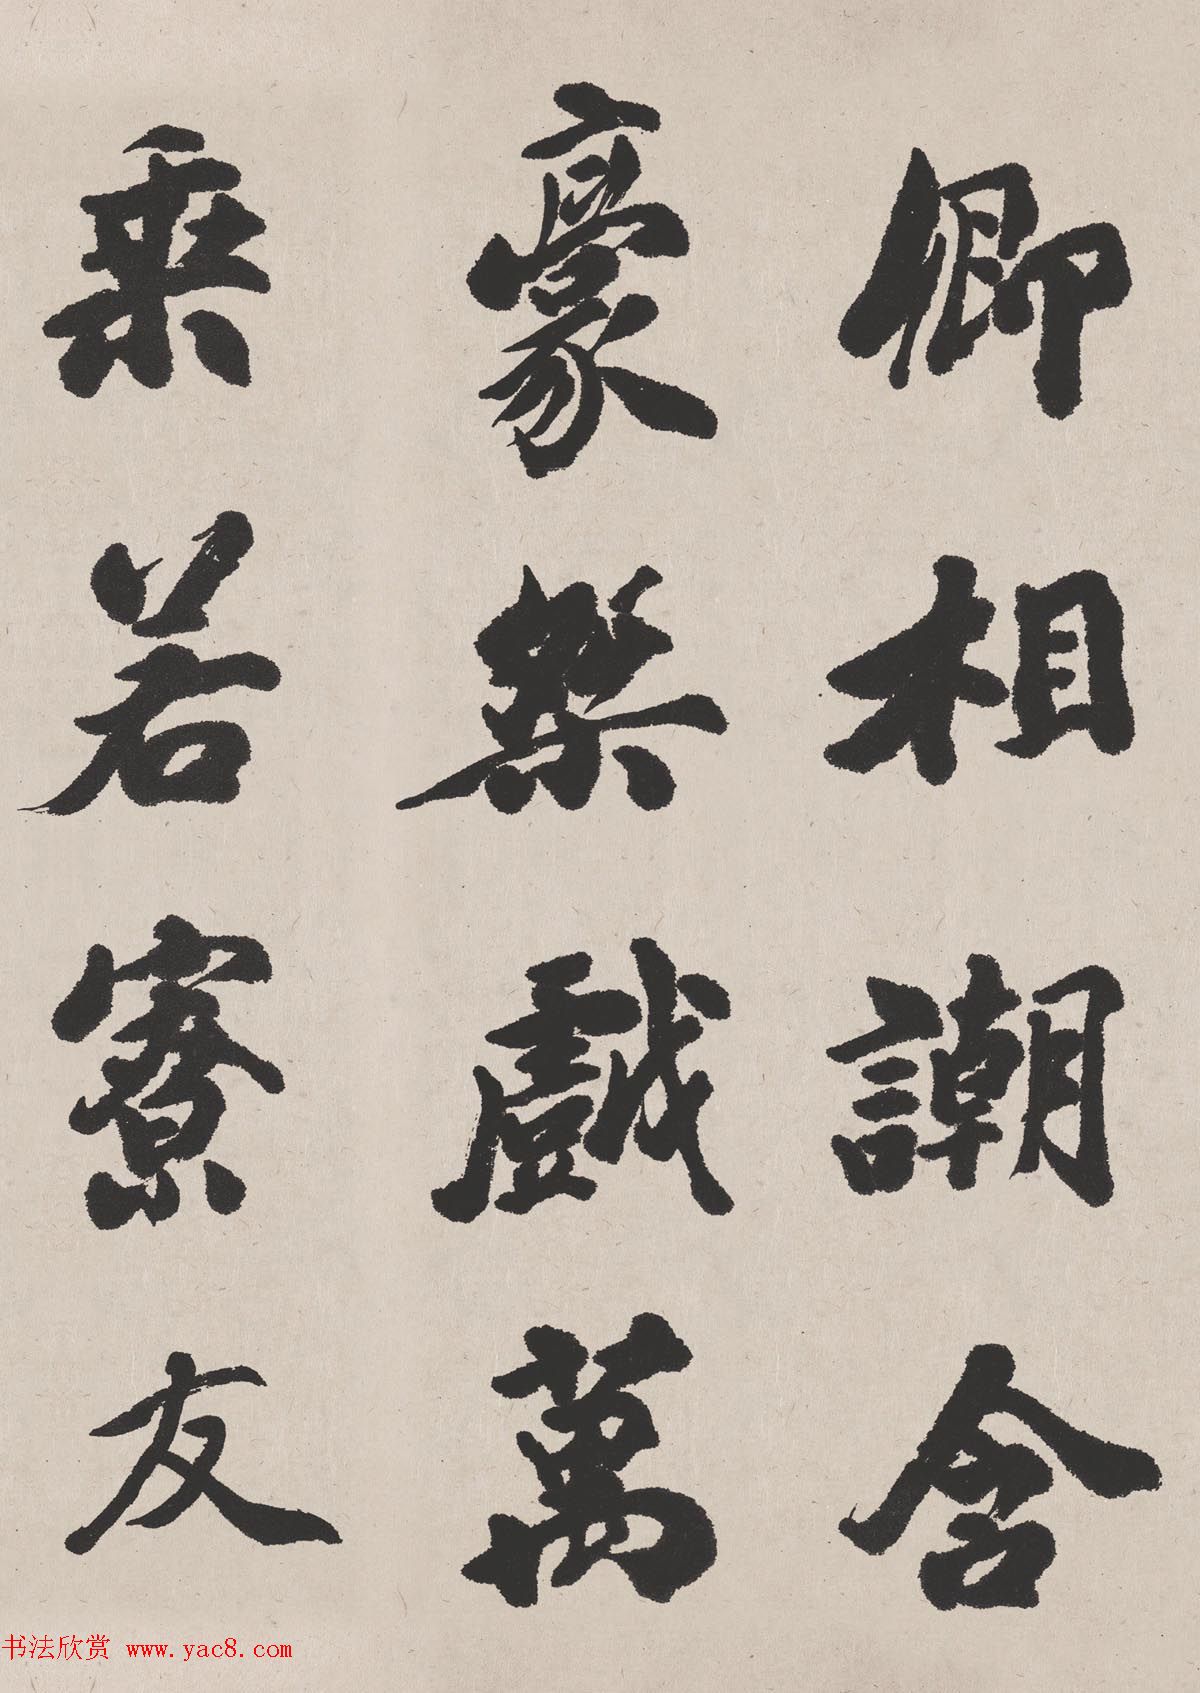 卿相潮含
豪桀戲萬
乘若寮友
书法欣赏 www.yac8.com